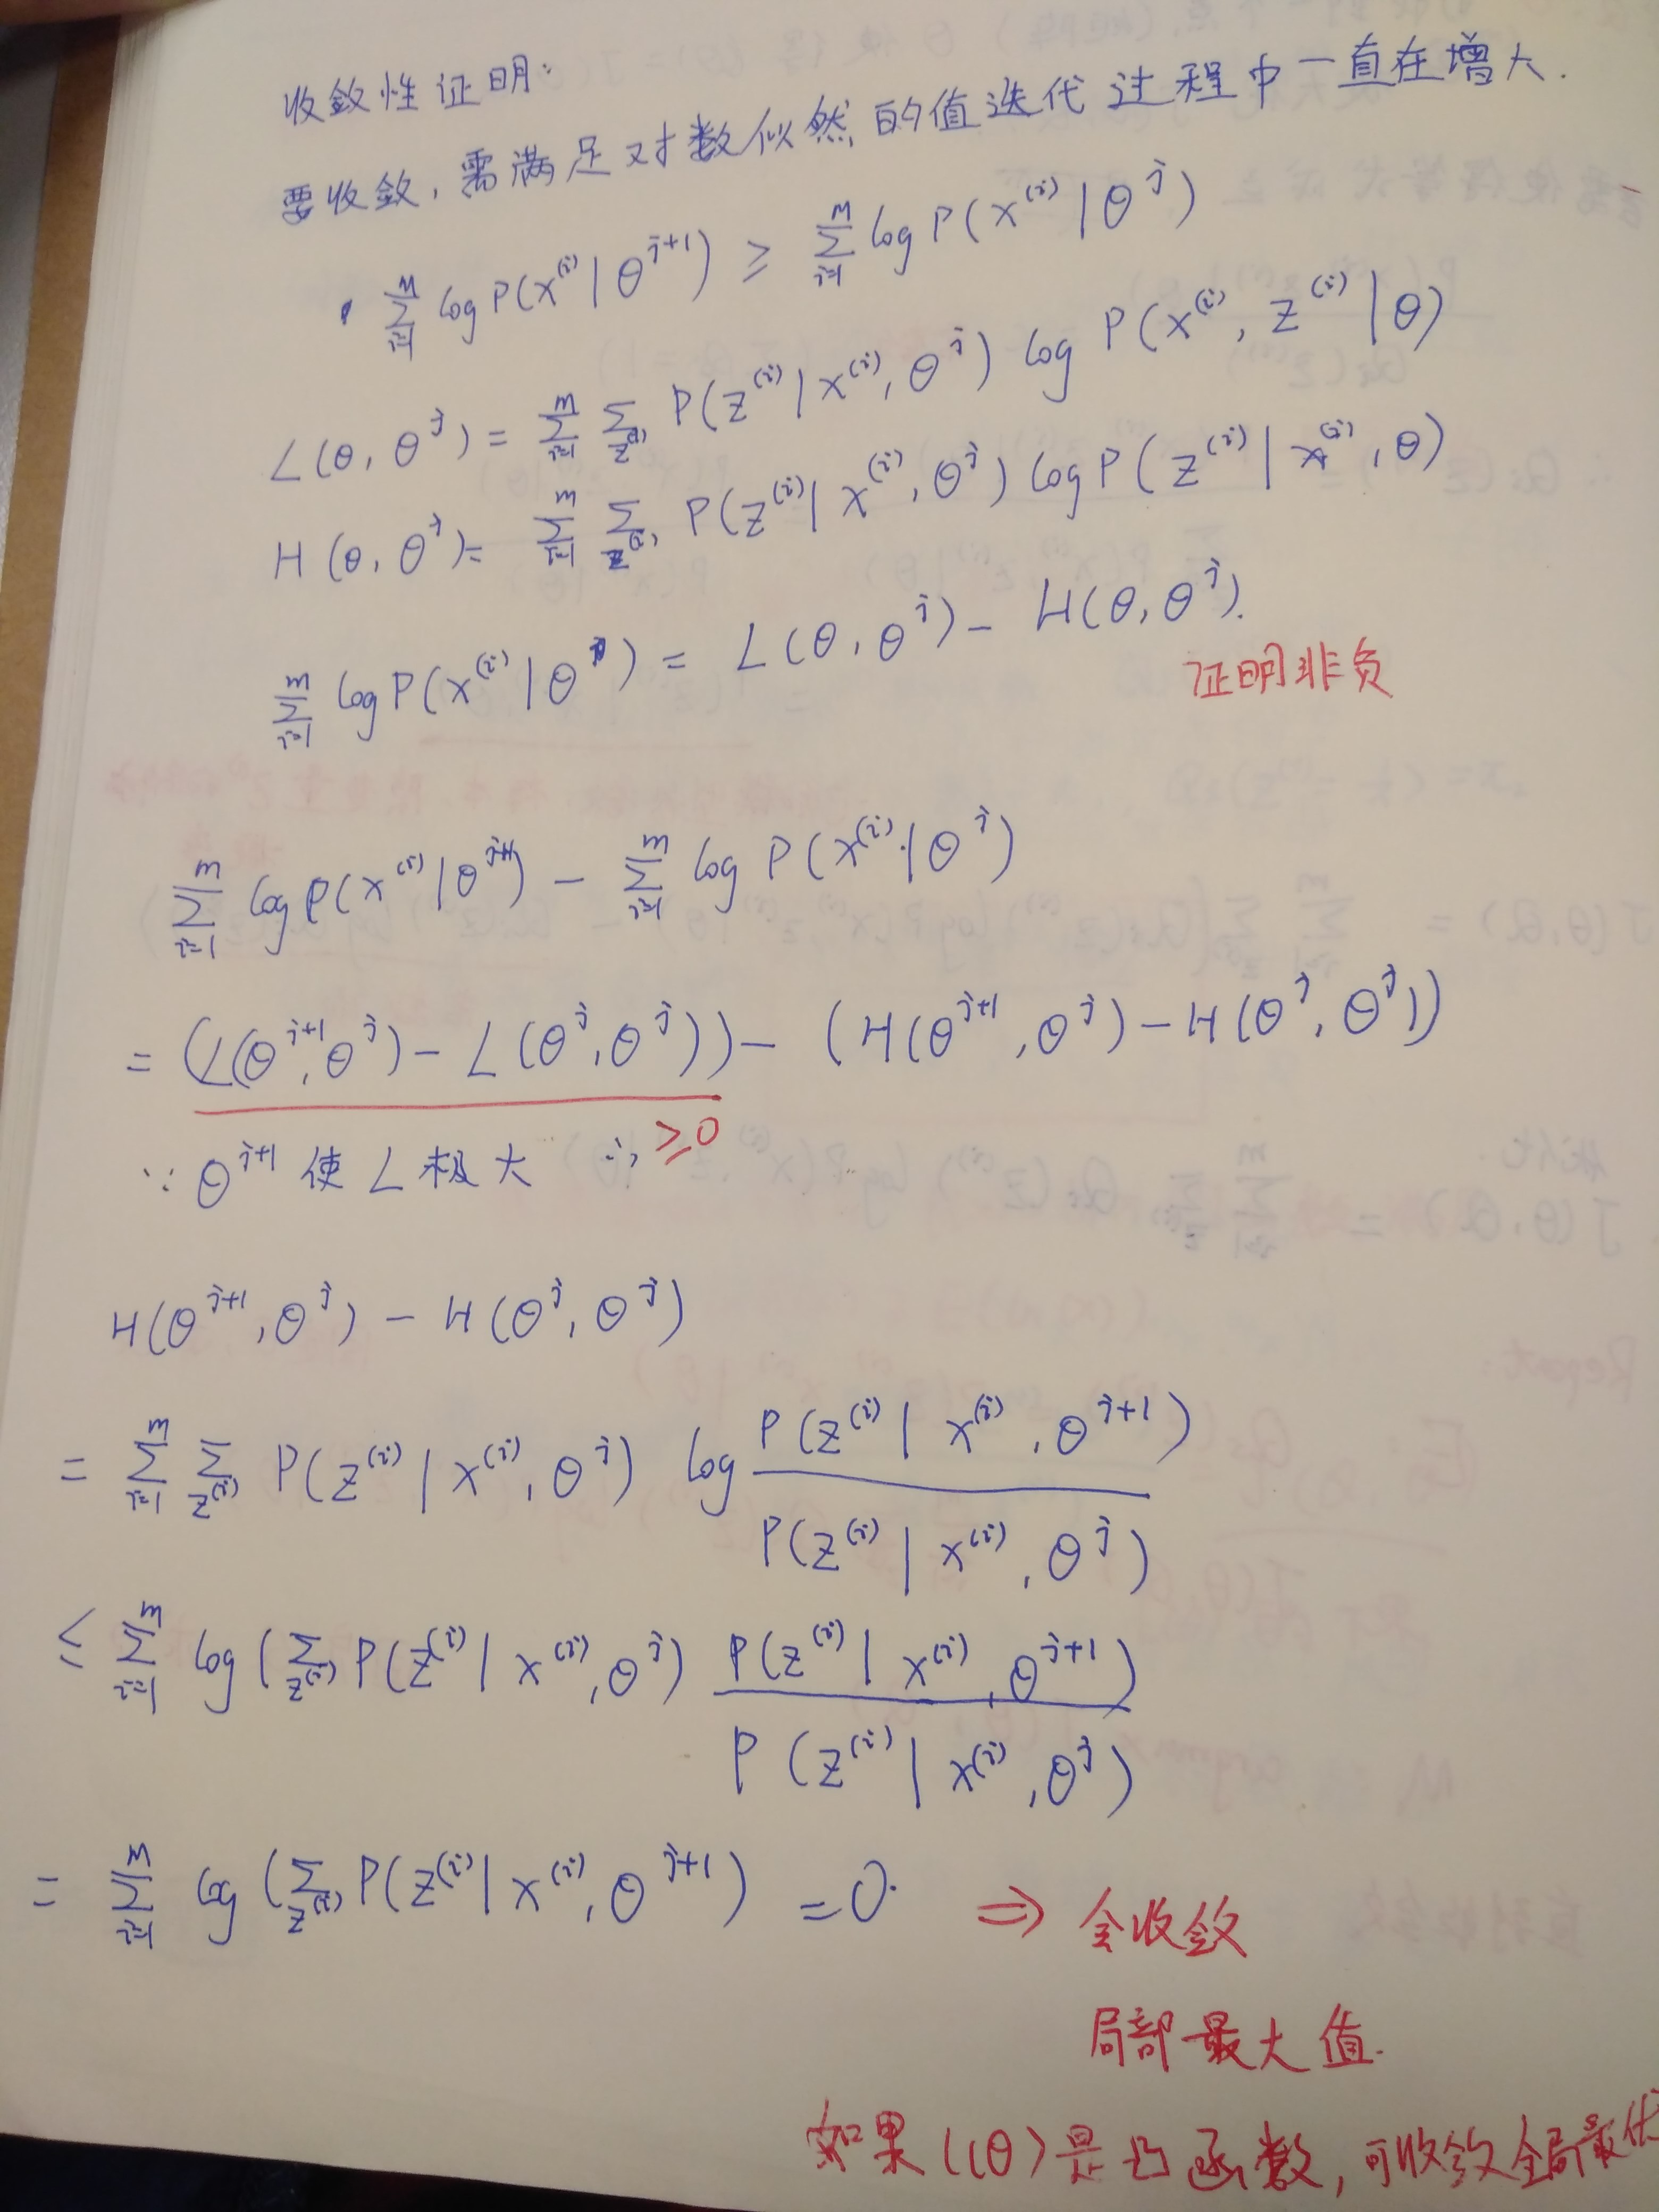 收敛性证明：
要收敛，需满足对数似然的值迭代过程中一直在增大.
· \sum_{i=1}^{m} log P(x^{(i)} | θ^{j+1}) ≥ \sum_{i=1}^{m} log P(x^{(i)} | θ^{j})
L(θ, θ^{j}) = \sum_{i=1}^{m} \sum_{z^{(i)}} P(z^{(i)} | x^{(i)}, θ^{j}) log P(x^{(i)}, z^{(i)} | θ)
H(θ, θ^{j}) = \sum_{i=1}^{m} \sum_{z^{(i)}} P(z^{(i)} | x^{(i)}, θ^{j}) log P(z^{(i)} | x^{(i)}, θ)
\sum_{i=1}^{m} log P(x^{(i)} | θ) = L(θ, θ^{j}) - H(θ, θ^{j}).
证明非负
\sum_{i=1}^{m} log P(x^{(i)} | θ^{j+1}) - \sum_{i=1}^{m} log P(x^{(i)} | θ^{j})
= (L(θ^{j+1}, θ^{j}) - L(θ^{j}, θ^{j})) - (H(θ^{j+1}, θ^{j}) - H(θ^{j}, θ^{j}))
∵ θ^{j+1} 使 L 极大 ∴ ≥0
H(θ^{j+1}, θ^{j}) - H(θ^{j}, θ^{j})
= \sum_{i=1}^{m} \sum_{z^{(i)}} P(z^{(i)} | x^{(i)}, θ^{j}) log \frac{P(z^{(i)} | x^{(i)}, θ^{j+1})}{P(z^{(i)} | x^{(i)}, θ^{j})}
≤ \sum_{i=1}^{m} log (\sum_{z^{(i)}} P(z^{(i)} | x^{(i)}, θ^{j}) \frac{P(z^{(i)} | x^{(i)}, θ^{j+1})}{P(z^{(i)} | x^{(i)}, θ^{j})}
= \sum_{i=1}^{m} log (\sum_{z^{(i)}} P(z^{(i)} | x^{(i)}, θ^{j+1}) = 0. ⇒ 会收敛
局部最大值.
如果 l(θ) 是凸函数, 可收敛全局最优